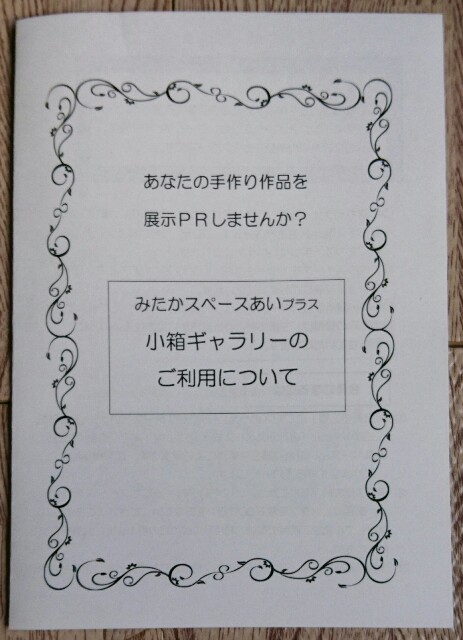 あなたの手作り作品を
展示ＰＲしませんか？
みたかスペースあいプラス
小箱ギャラリーの
ご利用について